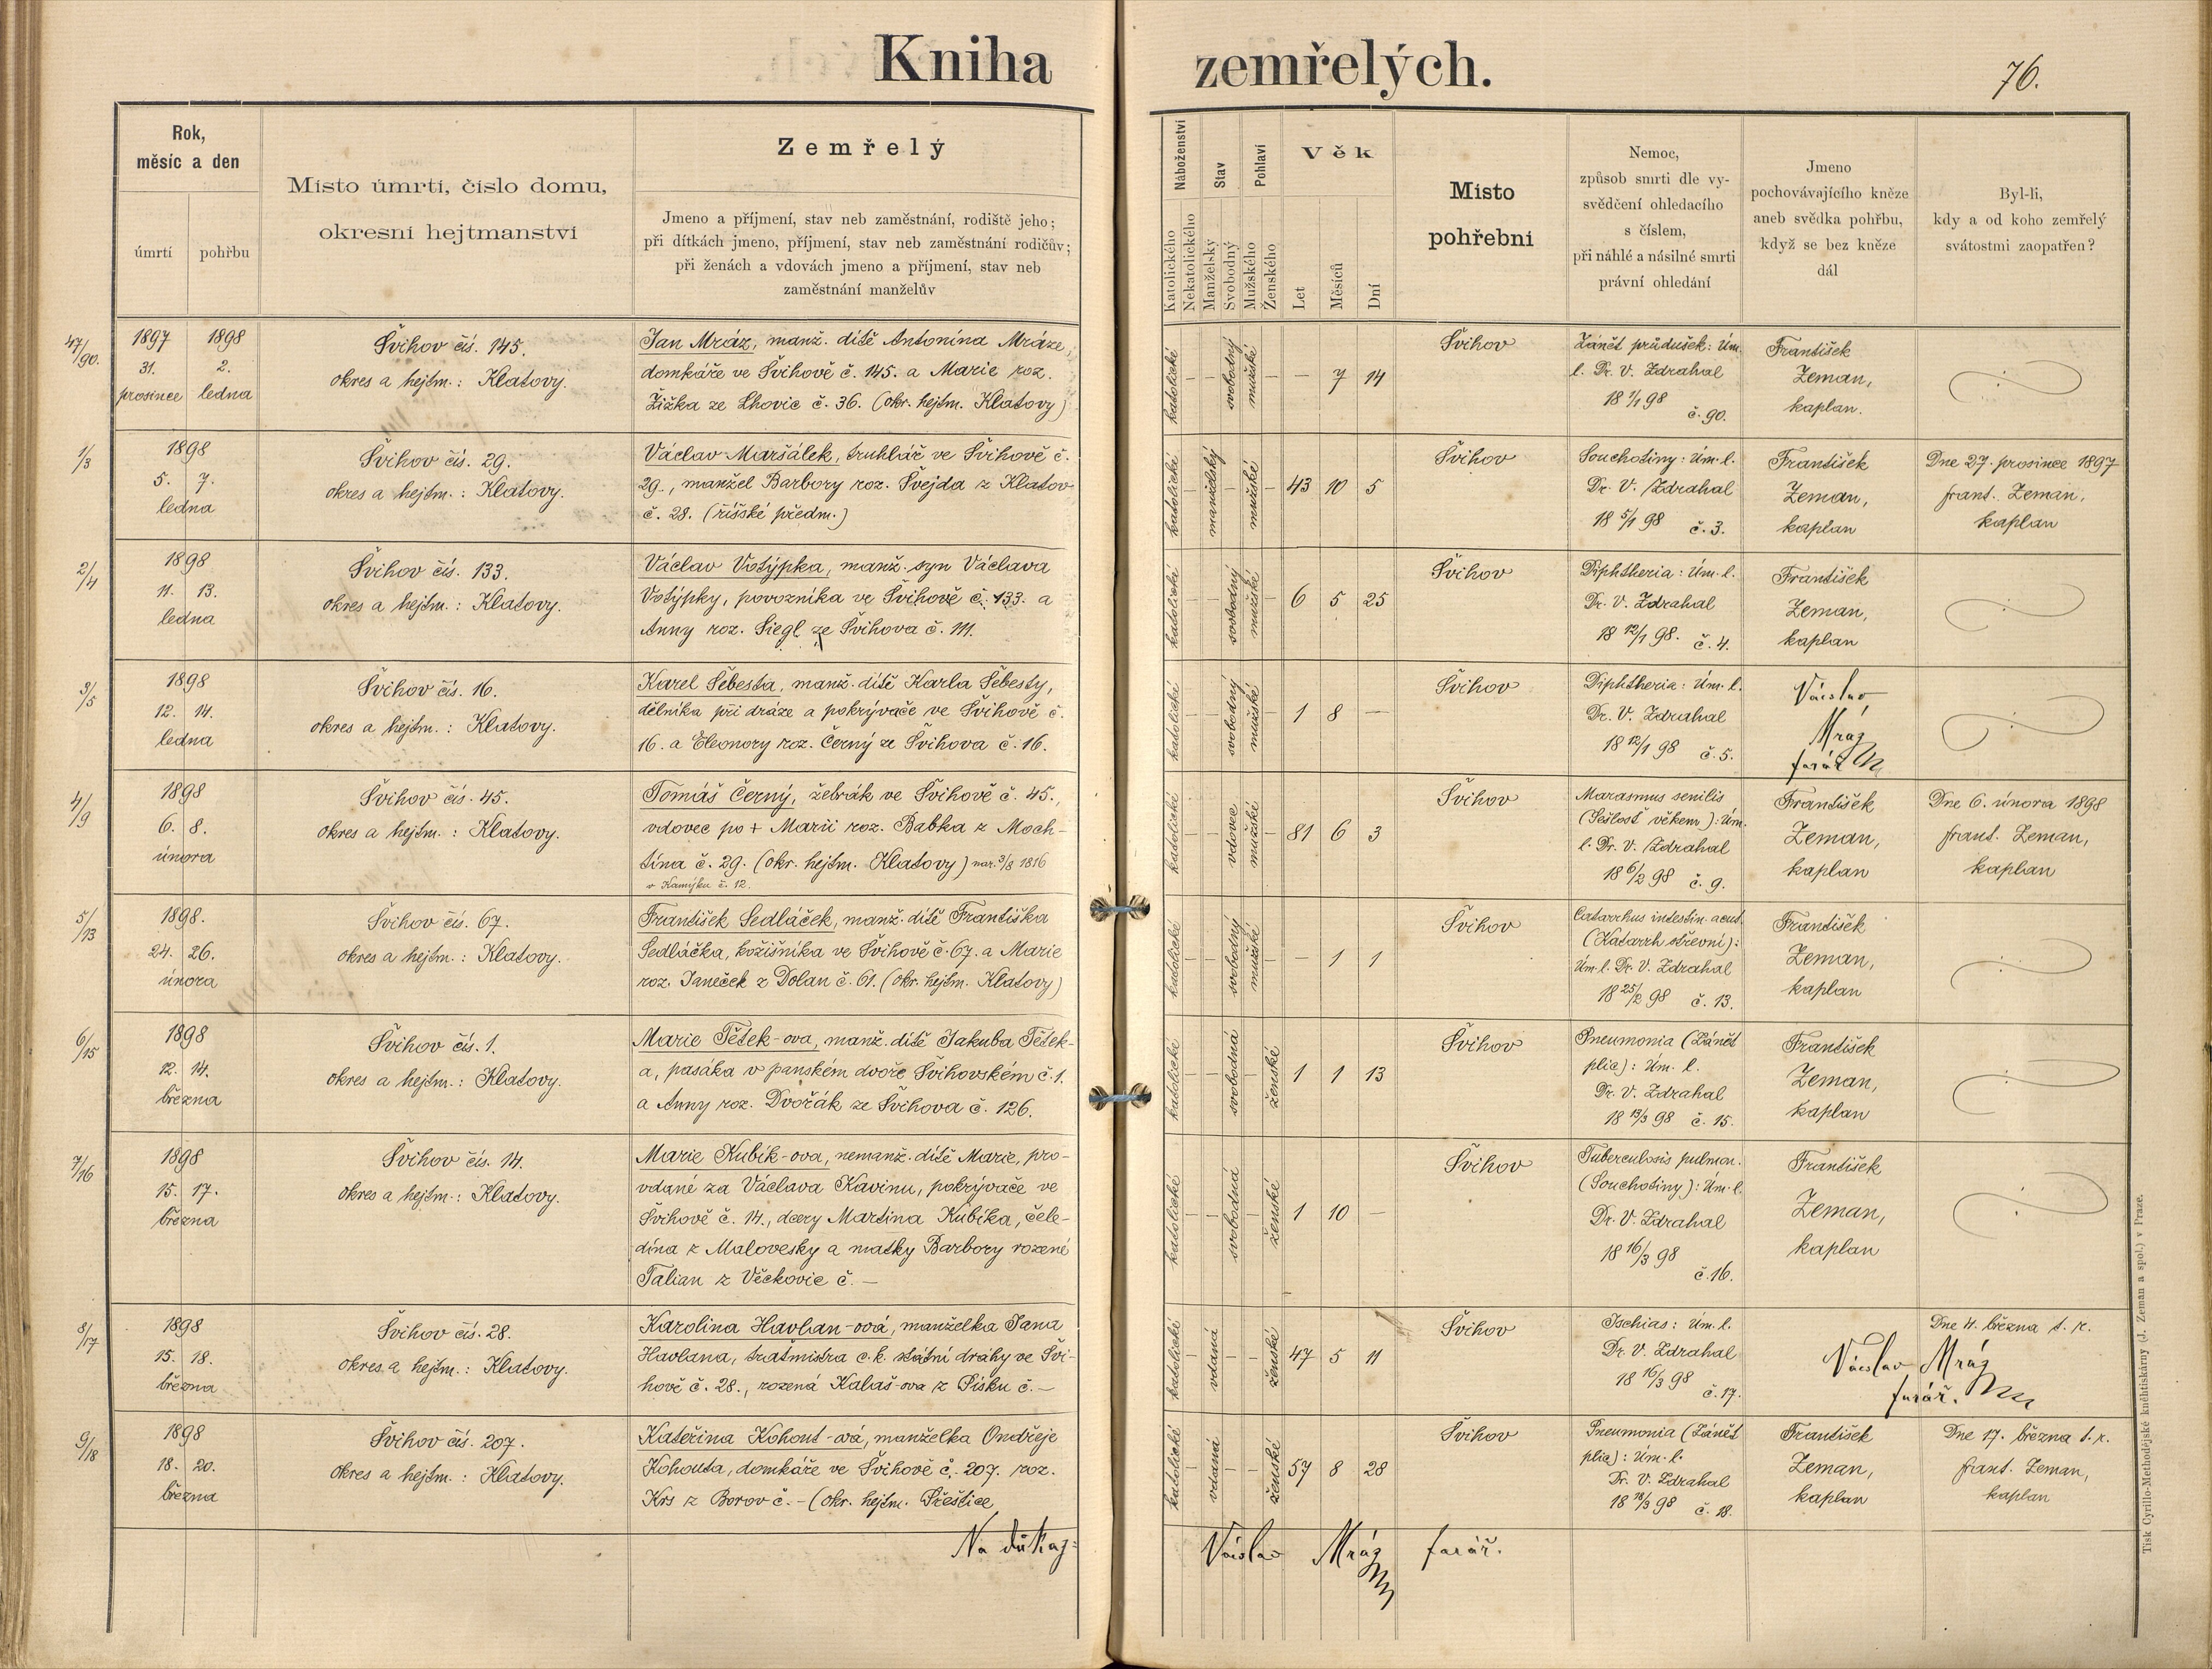 Kniha zemřelých.
76.
Rok,
měsíc a den
úmrtí
pohřbu
Místo úmrtí, číslo domu,
okresní hejtmanství
Zemřelý
Jmeno a příjmení, stav neb zaměstnání, rodiště jeho;
při dítkách jmeno, příjmení, stav neb zaměstnání rodičův;
při ženách a vdovách jmeno a příjmení, stav neb
zaměstnání manželův
Náboženství
Katolického
Nekatolického
Stav
Manželský
Svobodný
Pohlaví
Mužského
Ženského
Věk
Let
Měsíců
Dní
Místo
pohřební
Nemoc,
způsob smrti dle vy-
svědčení ohledacího
s číslem,
při náhlé a násilné smrti
právní ohledání
Jmeno
pochovávajícího kněze
aneb svědka pohřbu,
když se bez kněze
dál
Byl-li,
kdy a od koho zemřelý
svátostmi zaopatřen?
47/90.
1897 1898
31. 2.
prosince ledna
Švihov čís. 145.
okres a hejtm.: Klatovy.
Jan Mráz, manž. dítě Antonína Mráze,
domkáře ve Švihově č. 145. a Marie roz.
Žižka ze Lhovic č. 36. (okr. hejtm. Klatovy)
katolické — — svobodný mužské — — 7 14
Švihov
Zánět průdušek: Úm.
l. Dr. V. Zdrahal
18 1/1 98
č. 90.
František
Zeman,
kaplan.
1/3
1898
5. 7.
ledna
Švihov čís. 29.
okres a hejtm.: Klatovy.
Václav Maršálek, truhlář ve Švihově č.
29., manžel Barbory roz. Švejda z Klatov
č. 28. (říšské předm.)
katolické — manželský — mužské — 43 10 5
Švihov
Souchotiny: Úm. l.
Dr. V. Zdrahal
18 5/1 98 č. 3.
František
Zeman,
kaplan
Dne 27. prosince 1897
frant. Zeman,
kaplan
2/4
1898
11. 13.
ledna
Švihov čís. 133.
okres a hejtm.: Klatovy.
Václav Votýpka, manž. syn Václava
Votýpky, povozníka ve Švihově č. 133. a
Anny roz. Siegl ze Švihova č. 111.
katolické — — svobodný mužské — 6 5 25
Švihov
Diphtheria: Úm. l.
Dr. V. Zdrahal
18 12/1 98. č. 4.
František
Zeman,
kaplan
3/5
1898
12. 14.
ledna
Švihov čís. 16.
okres a hejtm.: Klatovy.
Karel Šebesta, manž. dítě Karla Šebesty,
dělníka při dráze a pokrývače ve Švihově č.
16. a Eleonory roz. Černý ze Švihova č. 16.
katolické — — svobodný mužské — 1 8 —
Švihov
Diphtheria: Úm. l.
Dr. V. Zdrahal
18 12/1 98 č. 5.
Václav
Mráz
farář
4/9
1898
6. 8.
února
Švihov čís. 45.
okres a hejtm.: Klatovy.
Tomáš Černý, žebrák ve Švihově č. 45.,
vdovec po + Marii roz. Babka z Moch-
tína č. 29. (okr. hejtm. Klatovy) nar. 3/8 1816
v Kamýku č. 12.
katolické — — vdovec mužské — 81 6 3
Švihov
Marasmus senilis
(Sešlost věkem): Úm.
l. Dr. V. Zdrahal
18 6/2 98 č. 9.
František
Zeman,
kaplan
Dne 6. února 1898
frant. Zeman,
kaplan
5/13
1898.
24. 26.
února
Švihov čís. 67.
okres a hejtm.: Klatovy.
František Sedláček, manž. dítě Františka
Sedláčka, kožišníka ve Švihově č. 67. a Marie
roz. Janeček z Dolan č. 61. (okr. hejtm. Klatovy)
katolické — — svobodný mužské — — 1 1
Švihov
Catarrhus intestin. acut.
(Katarrh střevní):
Úm. l. Dr. V. Zdrahal
18 25/2 98 č. 13.
František
Zeman,
kaplan
6/15
1898
12. 14.
března
Švihov čís. 1.
okres a hejtm.: Klatovy.
Marie Tětek-ova, manž. dítě Jakuba Tětek-
a, pasáka v panském dvoře Švihovském č. 1.
a Anny roz. Dvořák ze Švihova č. 126.
katolické — — svobodná — ženské 1 1 13
Švihov
Pneumonia (Zánět
plic): Úm. l.
Dr. V. Zdrahal
18 13/3 98 č. 15.
František
Zeman,
kaplan
7/16
1898
15. 17.
března
Švihov čís. 14.
okres a hejtm.: Klatovy.
Marie Kubík-ova, nemanž. dítě Marie, pro-
vdané za Václava Kavinu, pokrývače ve
Švihově č. 14., dcery Martina Kubíka, čele-
dína z Malovesky a matky Barbory rozené
Talian z Věckovic č. —
katolické — — svobodná — ženské 1 10 —
Švihov
Tuberculosis pulmon.
(Souchotiny): Úm. l.
Dr. V. Zdrahal
18 16/3 98
č. 16.
František
Zeman,
kaplan
8/17
1898
15. 18.
března
Švihov čís. 28.
okres a hejtm.: Klatovy.
Karolina Havlan-ová, manželka Jana
Havlana, tratmistra c. k. státní dráhy ve Švi-
hově č. 28., rozená Kalaš-ova z Písku č. —
katolické — vdaná — — ženské 47 5 11
Švihov
Ischias: Úm. l.
Dr. V. Zdrahal
18 16/3 98
č. 17.
Dne 4. března t. r.
Václav Mráz
farář.
9/18
1898
18. 20.
března
Švihov čís. 207.
okres a hejtm.: Klatovy.
Kateřina Kohout-ová, manželka Ondřeje
Kohouta, domkáře ve Švihově č. 207. roz.
Krs z Borov č. — (okr. hejtm. Přeštice
katolické — vdaná — — ženské 57 8 28
Švihov
Pneumonia (Zánět
plic): Úm. l.
Dr. V. Zdrahal
18 18/3 98 č. 18.
František
Zeman,
kaplan
Dne 17. března t. r.
frant. Zeman,
kaplan
Na důkaz:
Václav Mráz farář.
Tisk Cyrillo-Methodějské knihtiskárny (J. Zeman a spol.) v Praze.